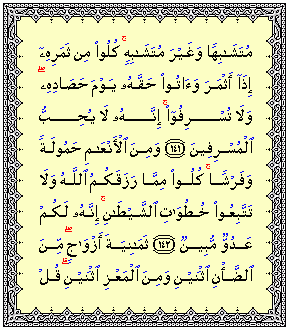 مُتَشَٰبِهًا وَغَيْرَ مُتَشَٰبِهٍ ۚ كُلُوا۟ مِن ثَمَرِهِۦٓ
إِذَآ أَثْمَرَ وَءَاتُوا۟ حَقَّهُۥ يَوْمَ حَصَادِهِۦ ۖ
وَلَا تُسْرِفُوٓا۟ ۚ إِنَّهُۥ لَا يُحِبُّ
ٱلْمُسْرِفِينَ ﴿١٤١﴾ وَمِنَ ٱلْأَنْعَٰمِ حَمُولَةً
وَفَرْشًا ۚ كُلُوا۟ مِمَّا رَزَقَكُمُ ٱللَّهُ وَلَا
تَتَّبِعُوا۟ خُطُوَٰتِ ٱلشَّيْطَٰنِ ۚ إِنَّهُۥ لَكُمْ
عَدُوٌّ مُّبِينٌ ﴿١٤٢﴾ ثَمَٰنِيَةَ أَزْوَٰجٍ ۖ مِّنَ
ٱلضَّأْنِ ٱثْنَيْنِ وَمِنَ ٱلْمَعْزِ ٱثْنَيْنِ ۗ قُلْ